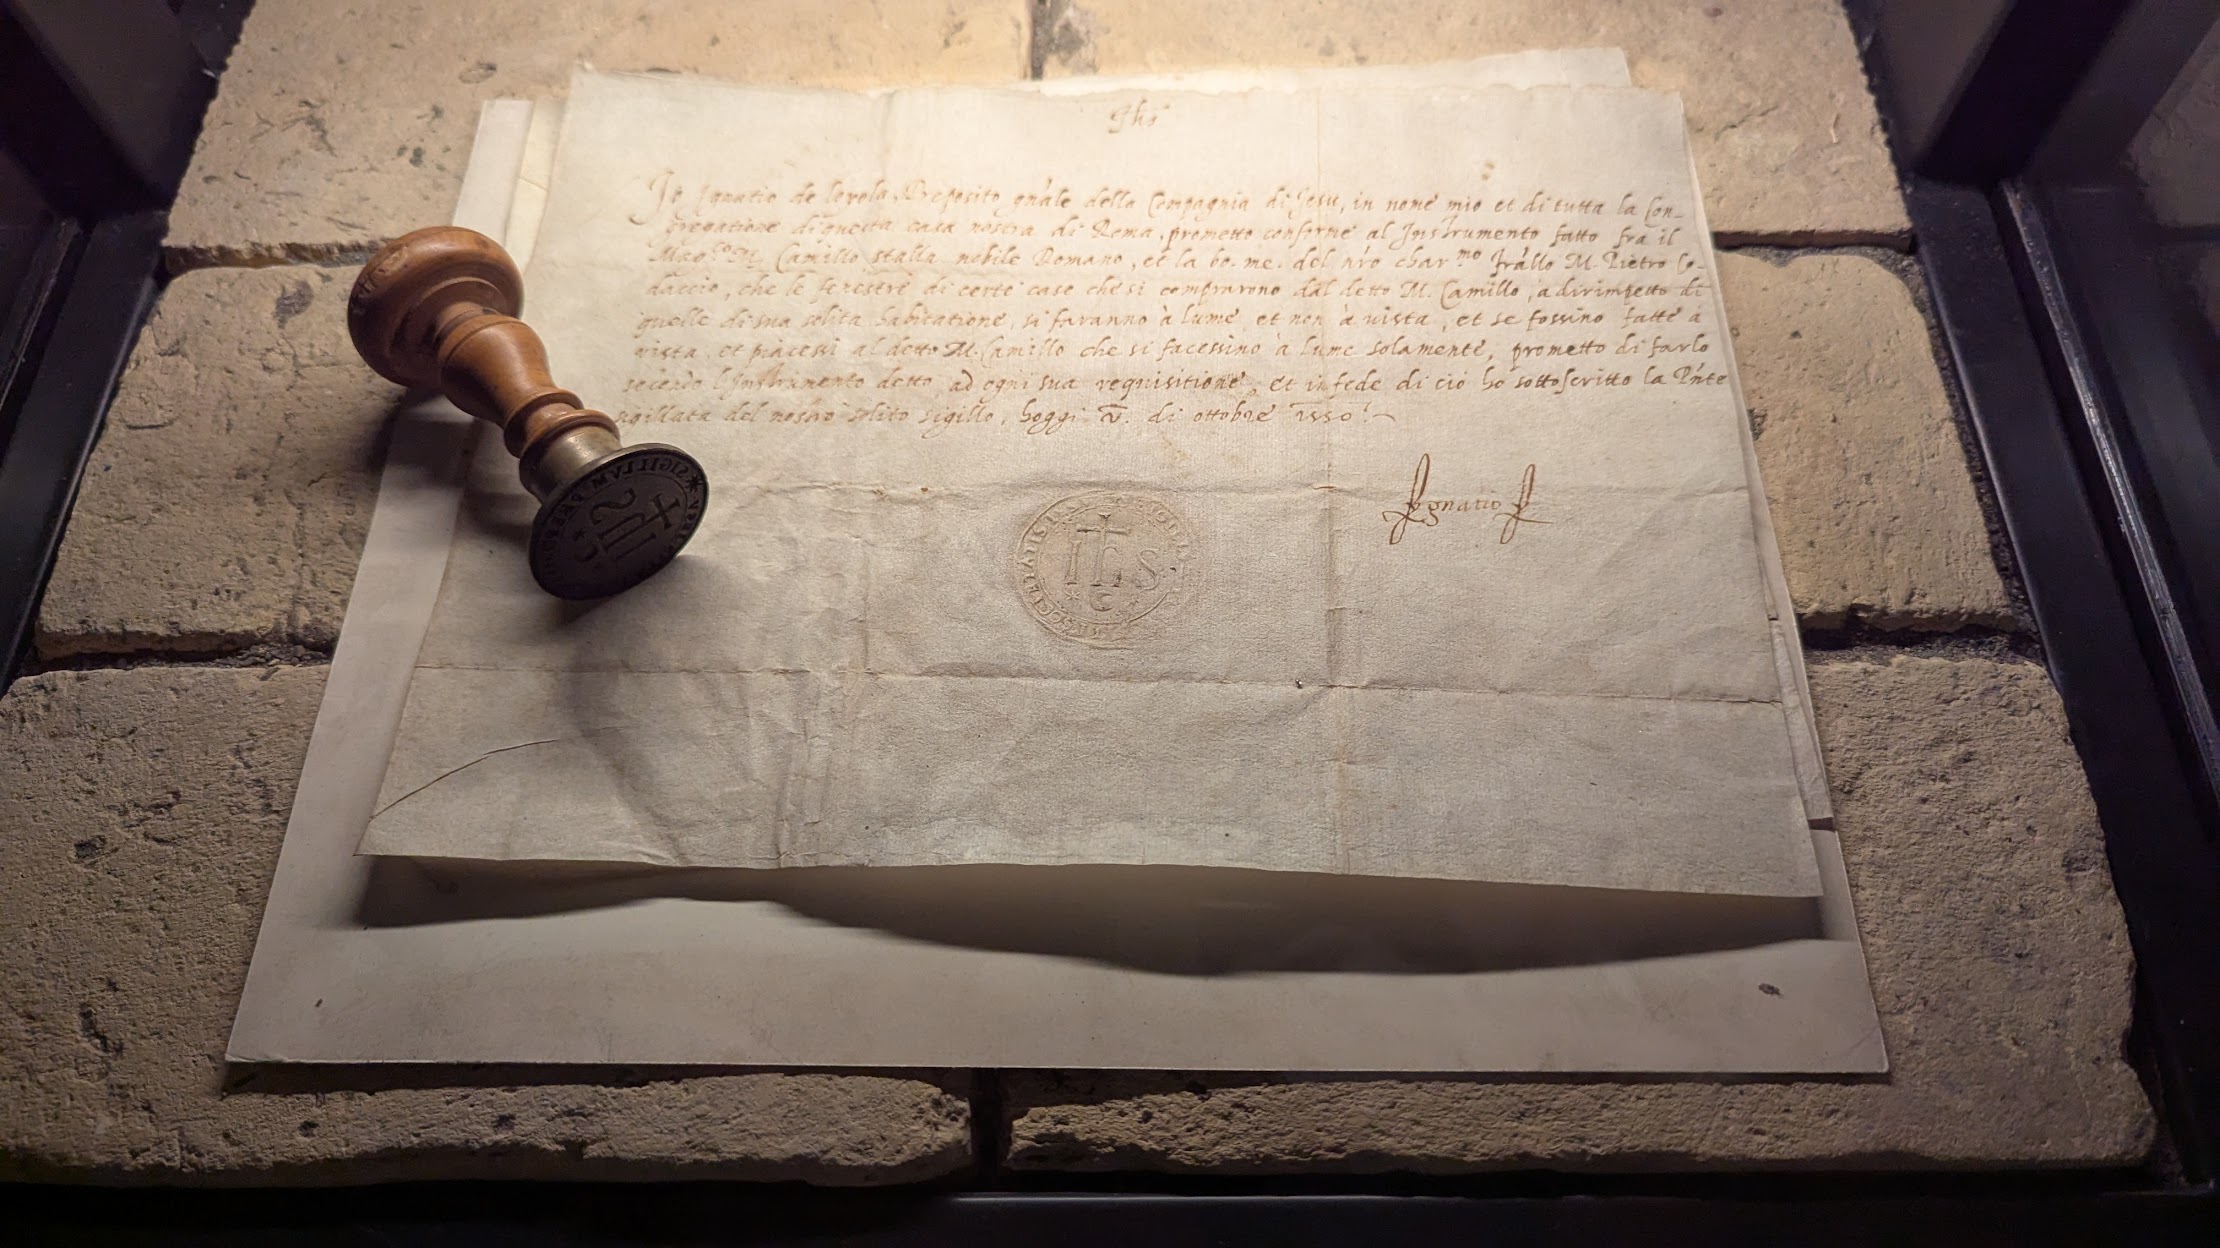 Jhs
Io Ignatio de loyola, Preposito gn̄ale della Compagnia di Jesu, in nome mio et di tutta la Con-
gregatione di questa casa nostra di Roma, prometto conforme al Instrumento fatto fra il
Mag.co M. Camillo stalla nobile Romano, et la bo. me. del nr̄o char.mo frāllo M. Pietro Co-
daccio, che le fenestre di certe case che si comprarono dal detto M. Camillo, a dirimpetto di
quelle di sua solita habitatione, si faranno à lume, et non à vista, et se fossino fatte à
vista, et piacessi al detto M. Camillo che si facessino à lume solamente, prometto di farlo
secondo l'Instrumento detto, ad ogni sua requisitione, et in fede di ciò ho sottoscritto la Pn̄te
sigillata del nostro solito sigillo, hoggi v. di ottobre 1550.
Ignatio
IHS
SIGILLVM
IHS
SOCIETATIS